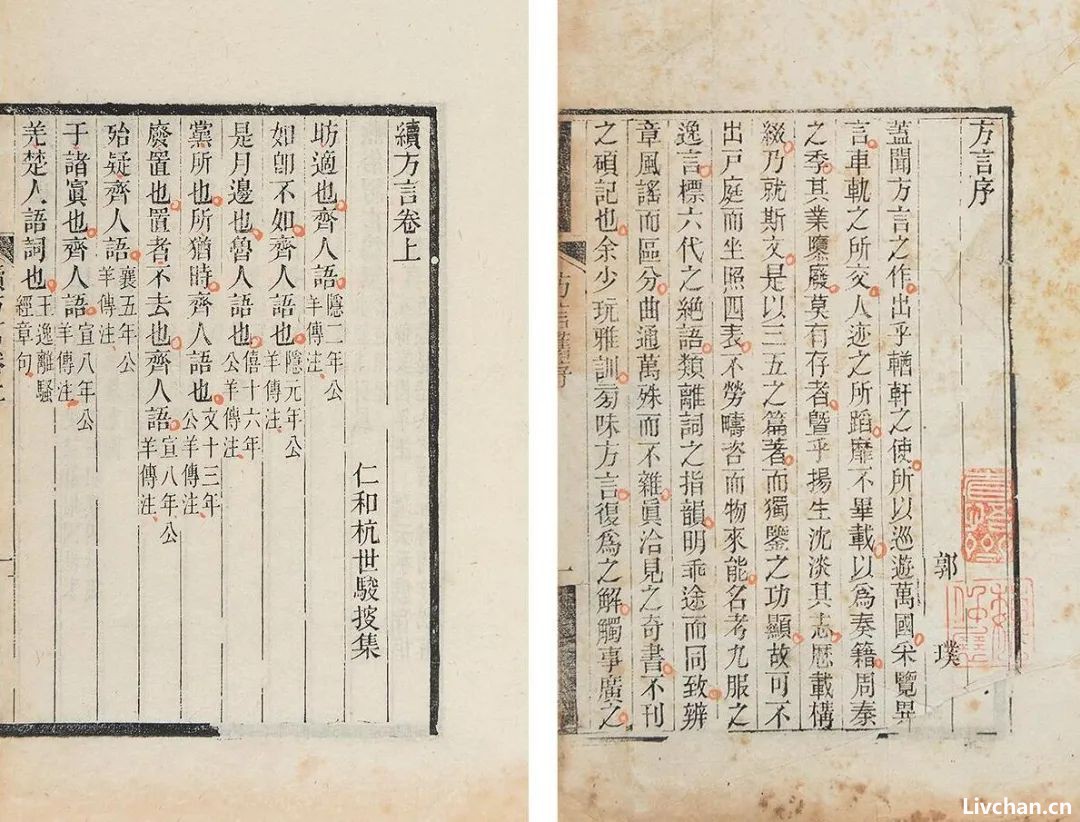 方言序
郭 璞
蓋聞方言之作出乎輶軒之使所以巡遊萬國采覽異
言車軌之所交人迹之所蹈靡不畢載以為奏籍周秦
之季其業隳廢莫有存者暨乎揚生沈淡其志歴載構
綴乃就斯文是以三五之篇著而獨鑒之功顯故可不
出戶庭而坐照四表不勞疇咨而物來能名考九服之
逸言標六代之絕語類離詞之指韻明乖途而同致辨
章風謠而區分曲通萬殊而不雜眞洽見之奇書不刊
之碩記也余少玩雅訓旁味方言復為之解觸事廣之
續方言卷上
仁和杭世駿披集
昉適也齊人語隱二年公羊傳注
如卽不如齊人語也隱元年公羊傳注
是月邊也魯人語也僖十六年公羊傳注
黨所也所猶時齊人語也文十三年公羊傳注
廢置也置者不去也齊人語宣八年公羊傳注
殆疑齊人語襄五年公羊傳注
于諸寘也齊人語宣八年公羊傳注
羌楚人語詞也王逸離騷經章句
Livchan.cn